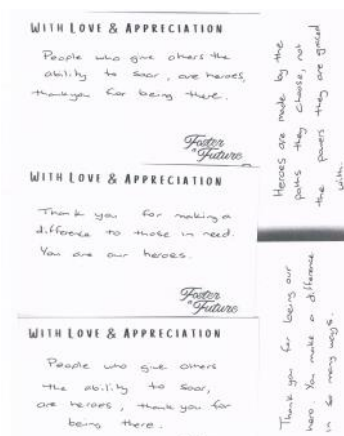 WITH LOVE & APPRECIATION
People who give others the
ability to soar, are heroes,
thankyou for being there.
Foster
a Future
WITH LOVE & APPRECIATION
Thank you for making a
difference to those in need.
You are our heroes.
Foster
a Future
WITH LOVE & APPRECIATION
People who give others
the ability to soar,
are heroes, thank you for
being there.
Heroes are made by the
paths they choose, not
the powers they are graced
with.
Thank you for being our
hero. You make a difference
in so many ways.